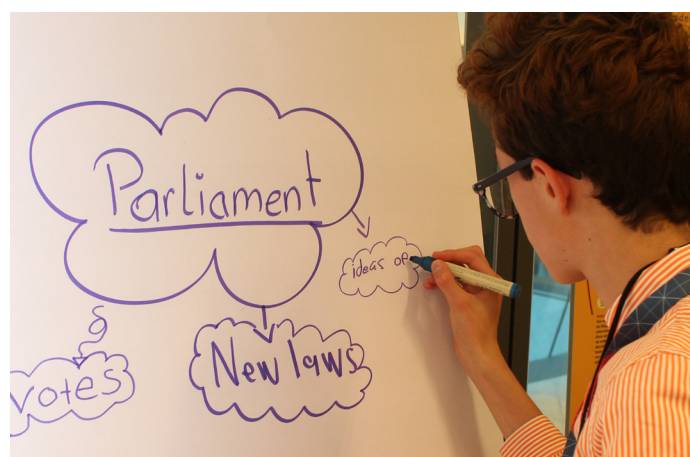 Parliament
ideas of
votes
New laws